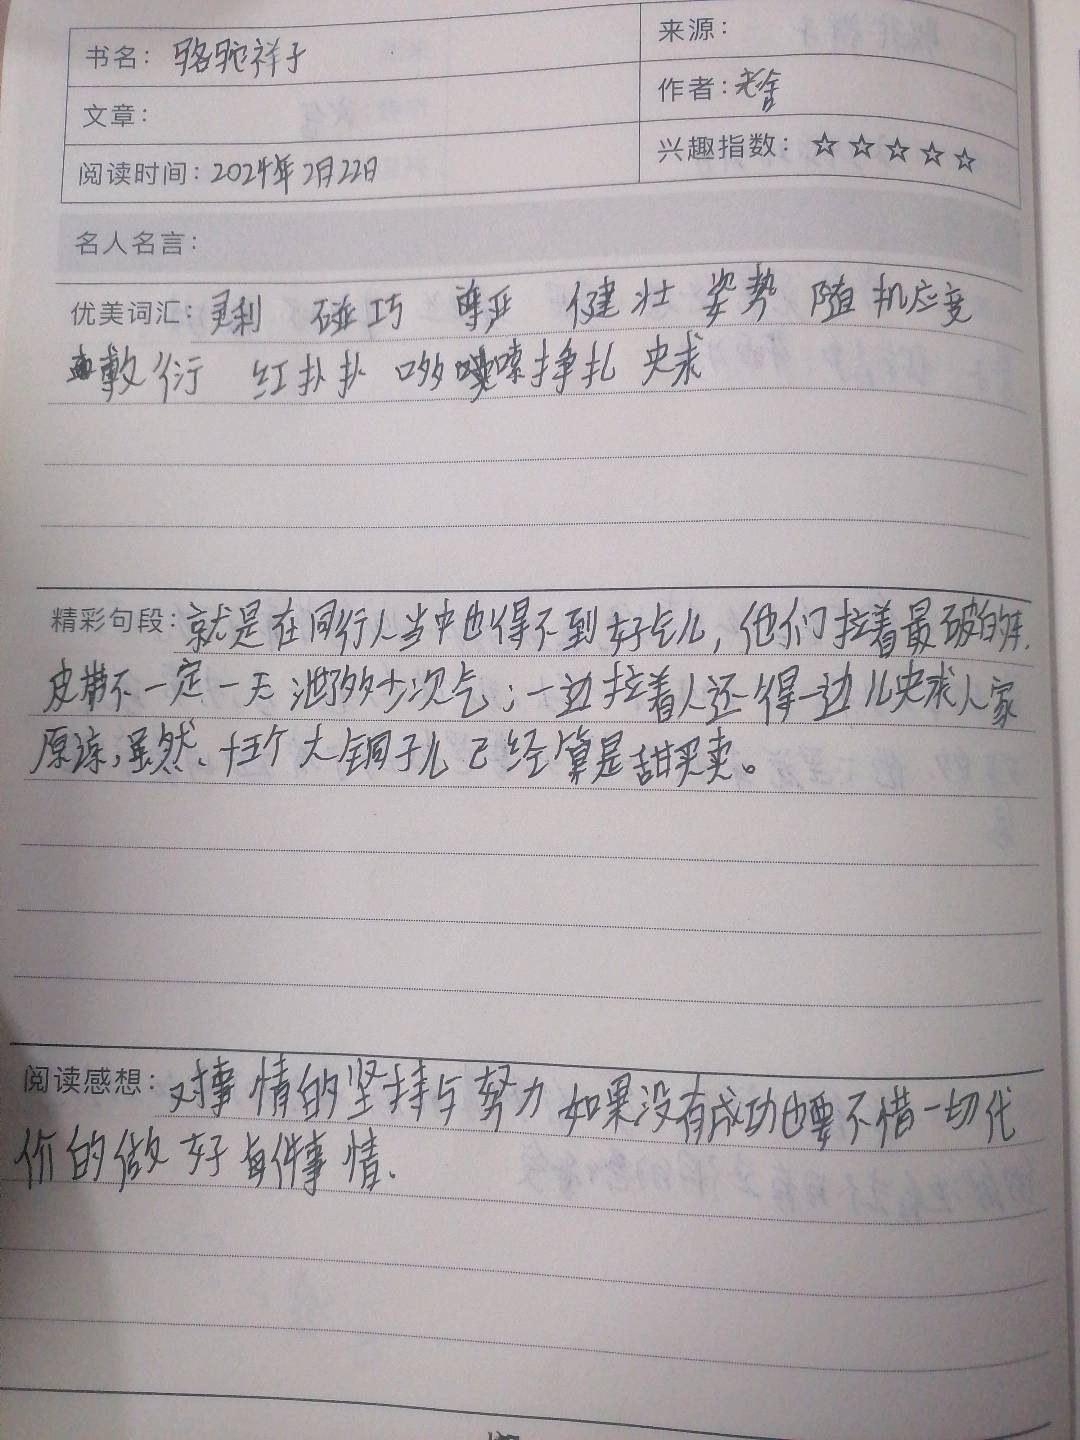 书名：骆驼祥子
来源：
文章：
作者：老舍
阅读时间：2024年2月22日
兴趣指数：☆☆☆☆☆
名人名言：
优美词汇：灵利 碰巧 健壮 姿势 随机应变
敷衍 红扑扑 哆嗦 挣扎 央求
精彩句段：就是在同行人当中也得不到好气儿，他们拉着最破的车，
皮带不一定一天泄多少次气；一边拉着人还得一边儿央求人家
原谅，虽然、十五个大铜子儿已经算是甜买卖。
阅读感想：对事情的坚持与努力 如果没有成功也要不惜一切代
价的做好每件事情.